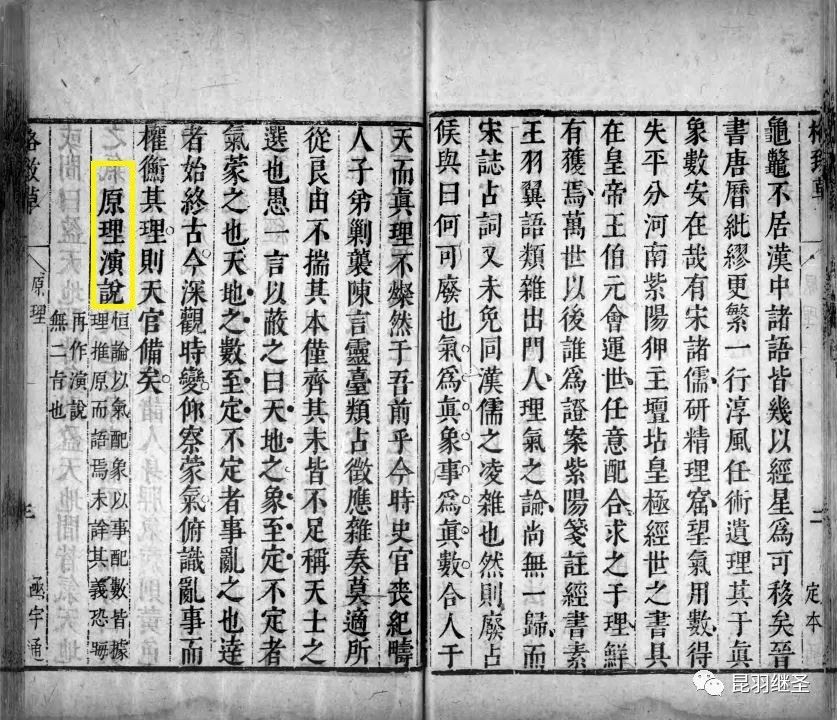 格致草
龜鼈不居漢中諸語皆幾以經星爲可移矣晉
書唐曆紕繆更繁一行淳風任術遺理其于眞
象數安在哉有宋諸儒研精理窟望氣用數得
失平分河南紫陽狎主壇坫皇極經世之書具
在皇帝王伯元會運世任意配合求之于理鮮
有獲焉萬世以後誰爲證案紫陽箋註經書素
王羽翼語類雜出門人理氣之論尚無一歸而
宋誌占詞又未免同漢儒之凌雜也然則廢占
候與曰何可廢也氣爲眞象事爲眞數合人于
二
定本
天而眞理不燦然于吾前乎今時史官喪紀疇
人子弟剿襲陳言靈臺類占徵應雜奏莫適所
從良由不揣其本僅齊其末皆不足稱天士之
選也愚一言以蔽之曰天地之象至定不定者
氣蒙之也天地之數至定不定者事亂之也達
者始終古今深觀時變仰察蒙氣俯識亂事而
權衡其理則天官備矣
原理演說
恒論以氣配象以事配數皆據
理推原而語焉未詮其義恐晦
再作演說
無二旨也
格致草
原理
三
函宇通
昆羽继圣